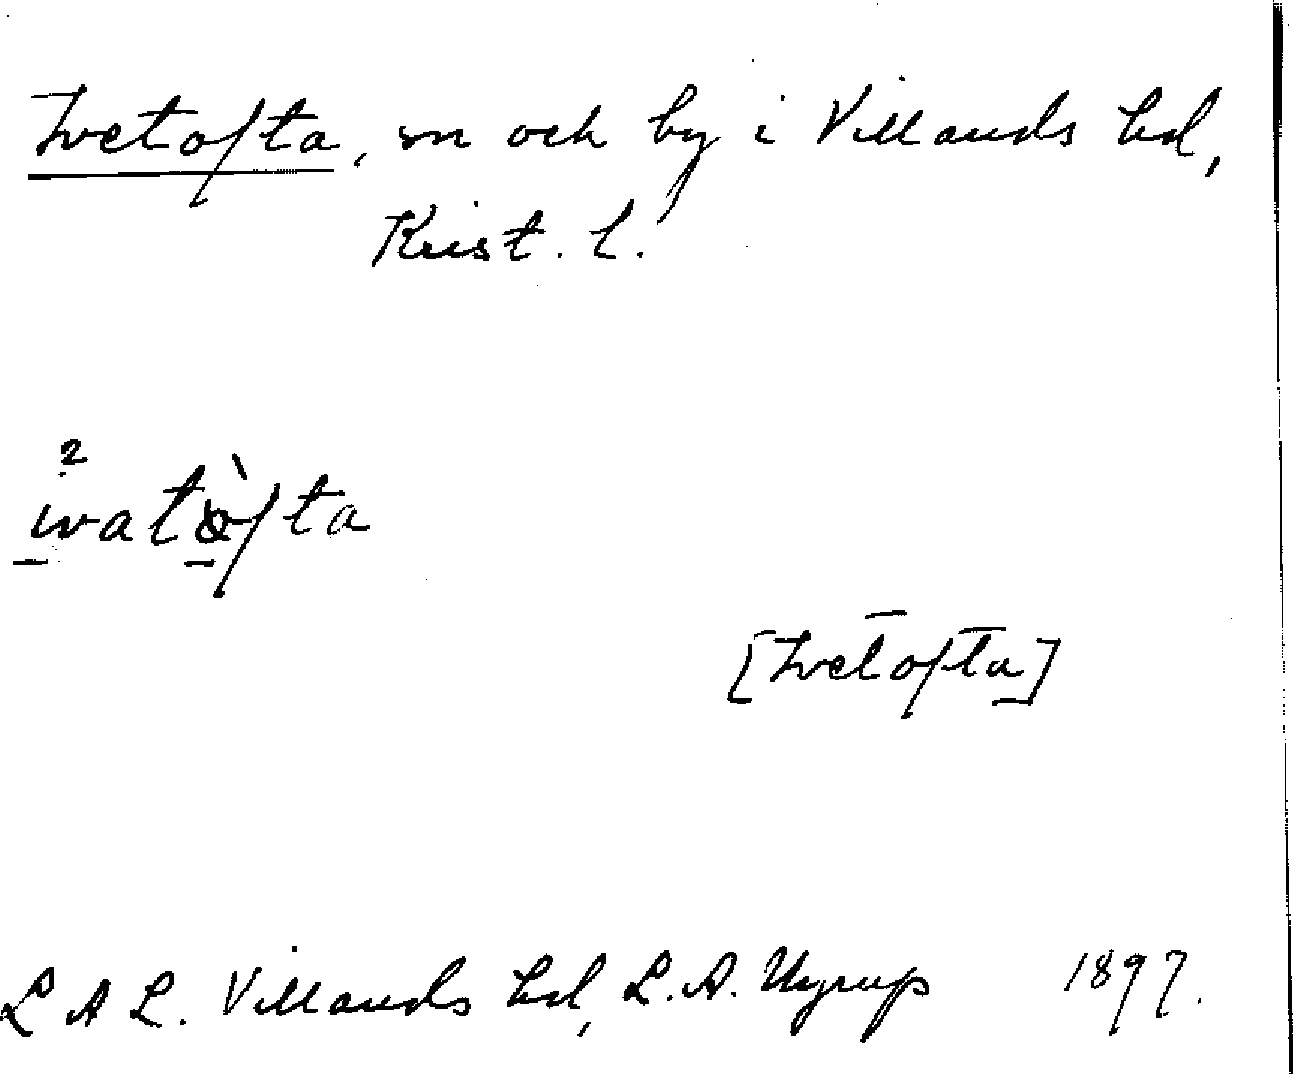 Ivetofta, sn och by i Villands hd,
Krist. l.
ivatòfta
[Ivetofta]
L A L. Villands hd, L. A. Ugrup 1897.